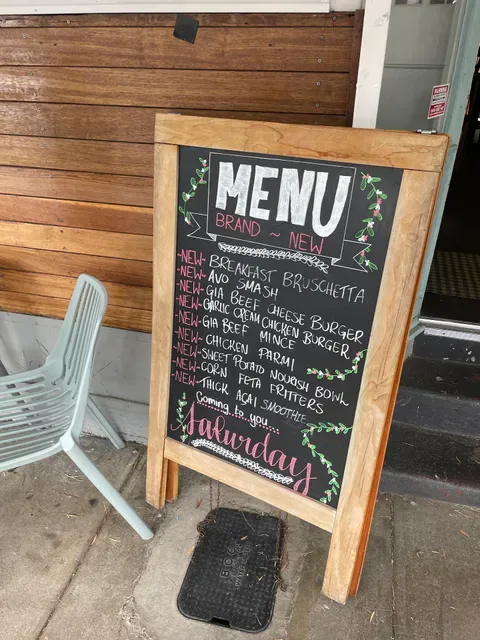 MENU
BRAND ~ NEW
-NEW- BREAKFAST BRUSCHETTA
-NEW- AVO SMASH
-NEW- GIA BEEF CHEESE BURGER
-NEW- GARLIC CREAM CHICKEN BURGER
-NEW- GIA BEEF MINCE
-NEW- CHICKEN PARMI
-NEW- SWEET POTATO NOURISH BOWL
-NEW- CORN FETA FRITTERS
-NEW- THICK ACAI SMOOTHIE
Coming to you...
Saturday